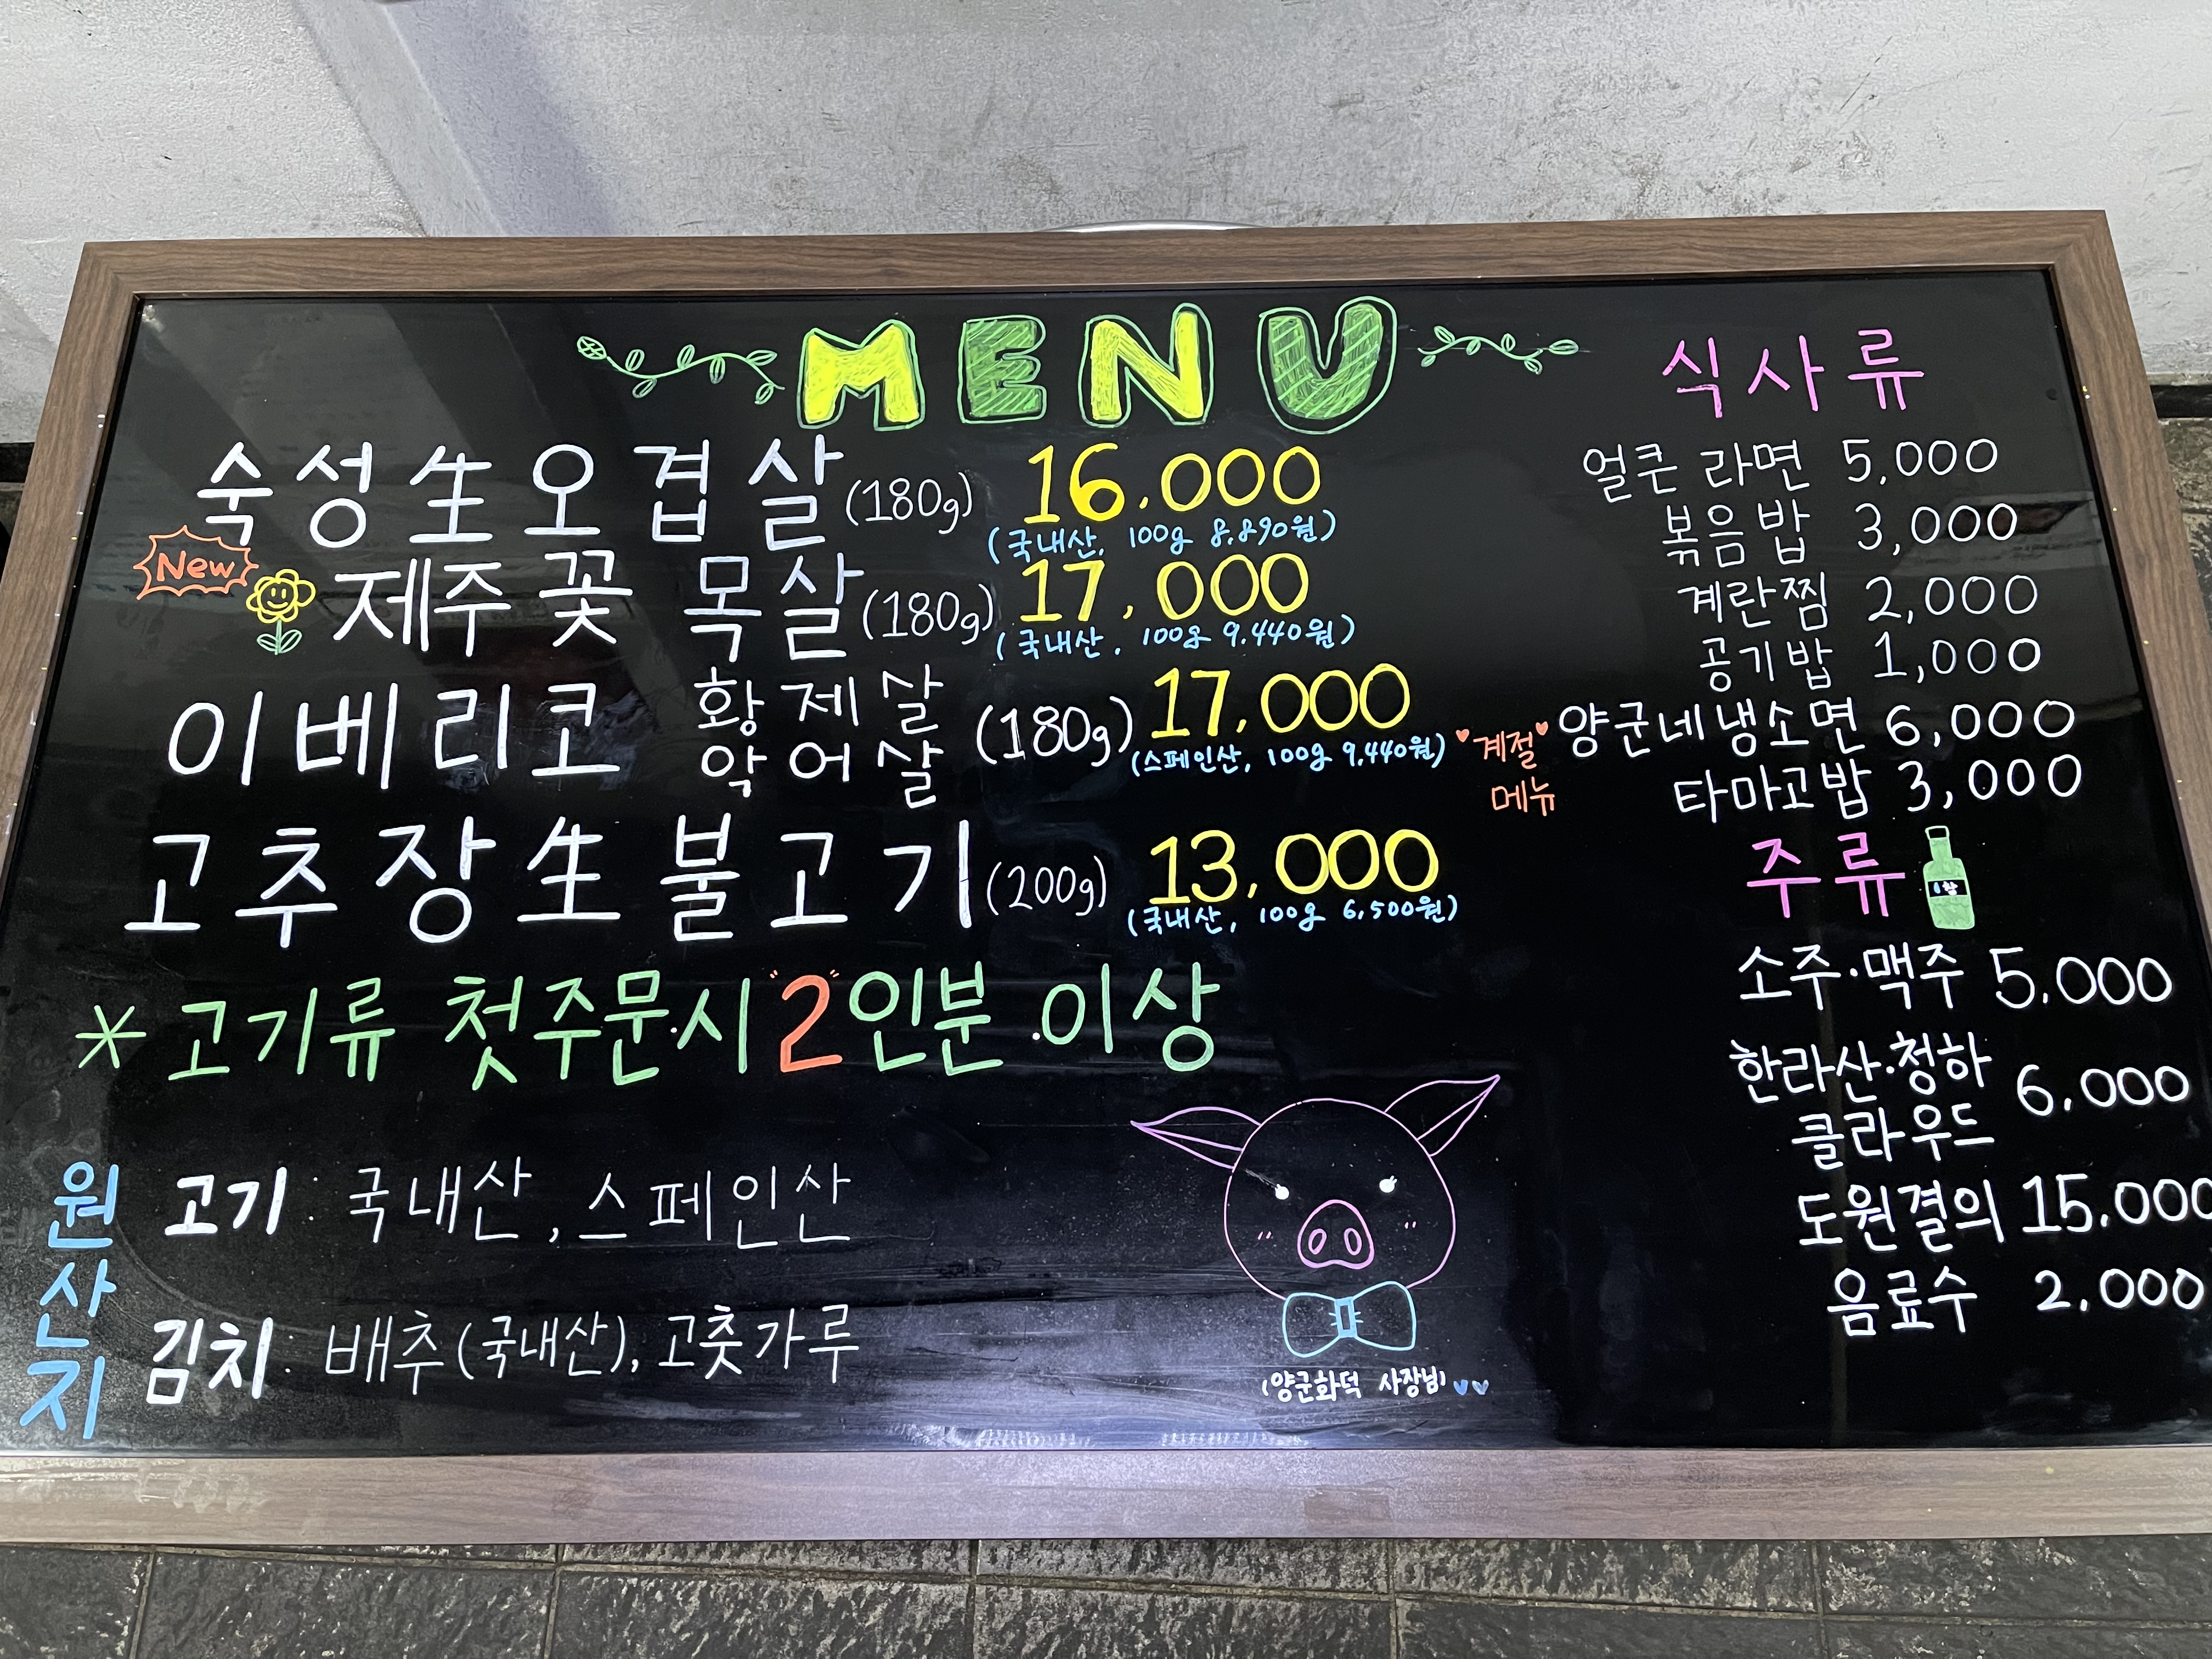 MENU
숙성生오겹살(180g) 16.000
(국내산, 100g 8.890원)
New 제주 꽃 목살(180g) 17,000
(국내산, 100g 9.440원)
이베리코 황제살 악어살 (180g) 17,000
(스페인산, 100g 9,440원)
고추장生불고기(200g) 13,000
(국내산, 100g 6,500원)
* 고기류 첫주문시 "2"인분 이상
원산지
고기: 국내산, 스페인산
김치: 배추(국내산), 고춧가루
(양군화덕 사장님)
식사류
얼큰 라면 5,000
볶음밥 3,000
계란찜 2,000
공기밥 1,000
계절메뉴 양군네냉소면 6,000
타마고밥 3,000
주류
소주·맥주 5.000
한라산·청하 클라우드 6.000
도원결의 15.000
음료수 2.000